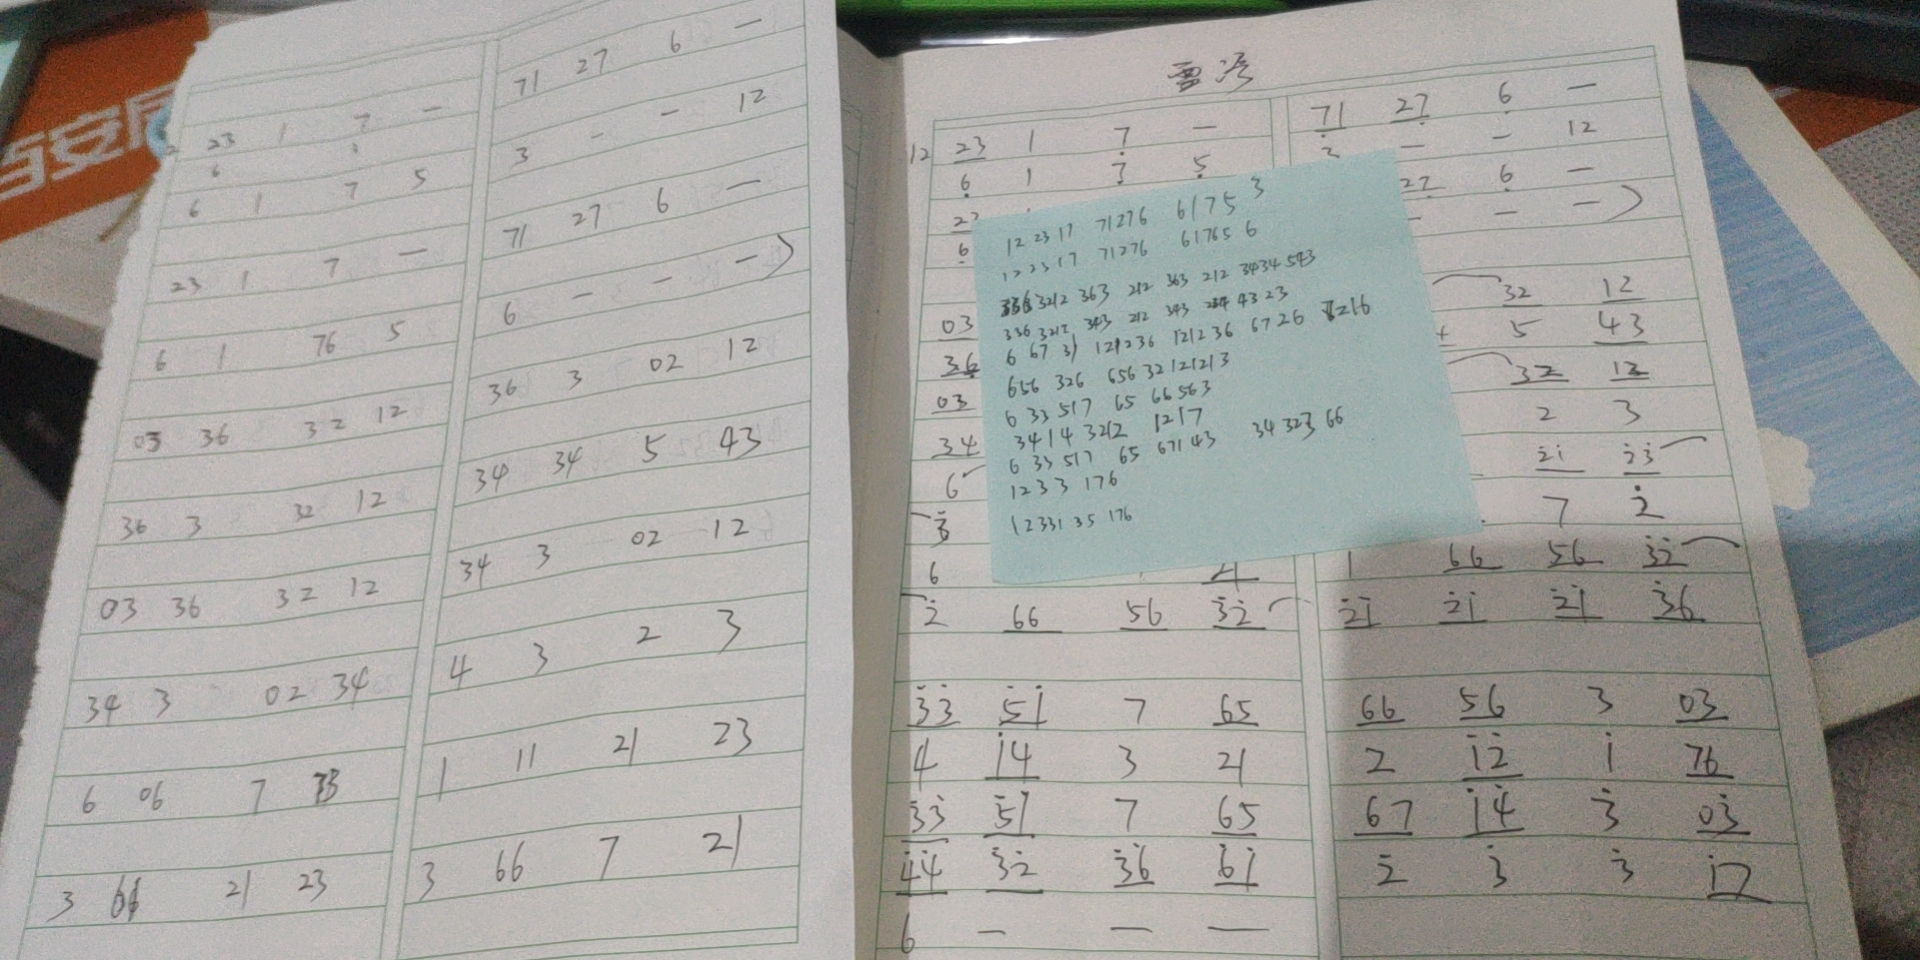 23 1 7 —
6 1 7 5
23 1 7 —
6 1 76 5
03 36 32 12
36 3 32 12
03 36 32 12
34 3 02 34
6 06 7
3 66 21 23
71 27 6 —
3 — — 12
71 27 6 —
6 — — —)
36 3 02 12
34 34 5 43
34 3 02 12
4 3 2 3
1 11 21 23
3 66 7 21
12 23 1 7 —
6 1 7 5
6
03
36
03
34
6
3
6 21
2 66 56 32
33 51 7 65
4 14 3 21
33 51 7 65
44 32 36 61
6 — — —
71 27 6 —
3 — — 12
27 6 —
— — )
32 12
5 43
32 12
2 3
21 23
7 2
1 66 56 32
21 21 21 36
66 56 3 03
2 12 1 76
67 14 3 03
2 3 3 17
12 23 17 71276 6175 3
12 23 17 71276 61765 6
336 3212 363 212 363 212 3434 543
336 3212 343 212 343 234 43 23
6 67 31 121236 1212 36 6726 7216
656 326 656 32 121213
6 33 517 65 66563
3414 3212 1217
6 33 517 65 67143 34 323 66
1233 176
12331 35 176